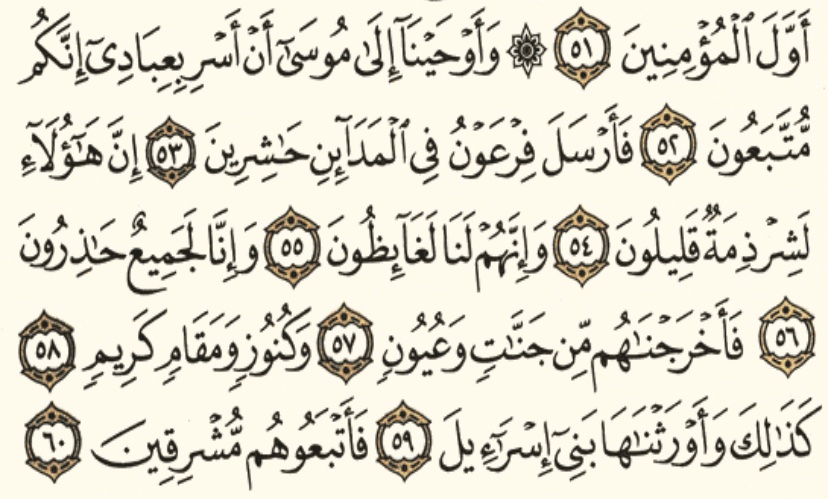 أَوَّلَ ٱلْمُؤْمِنِينَ ٥١ ۞ وَأَوْحَيْنَآ إِلَىٰ مُوسَىٰٓ أَنْ أَسْرِ بِعِبَادِىٓ إِنَّكُم
مُّتَّبَعُونَ ٥٢ فَأَرْسَلَ فِرْعَوْنُ فِى ٱلْمَدَآئِنِ حَـٰشِرِينَ ٥٣ إِنَّ هَـٰٓؤُلَآءِ
لَشِرْذِمَةٌ قَلِيلُونَ ٥٤ وَإِنَّهُمْ لَنَا لَغَآئِظُونَ ٥٥ وَإِنَّا لَجَمِيعٌ حَـٰذِرُونَ
٥٦ فَأَخْرَجْنَـٰهُم مِّن جَنَّـٰتٍ وَعُيُونٍ ٥٧ وَكُنُوزٍ وَمَقَامٍ كَرِيمٍ ٥٨
كَذَٰلِكَ وَأَوْرَثْنَـٰهَا بَنِىٓ إِسْرَٰٓءِيلَ ٥٩ فَأَتْبَعُوهُم مُّشْرِقِينَ ٦٠